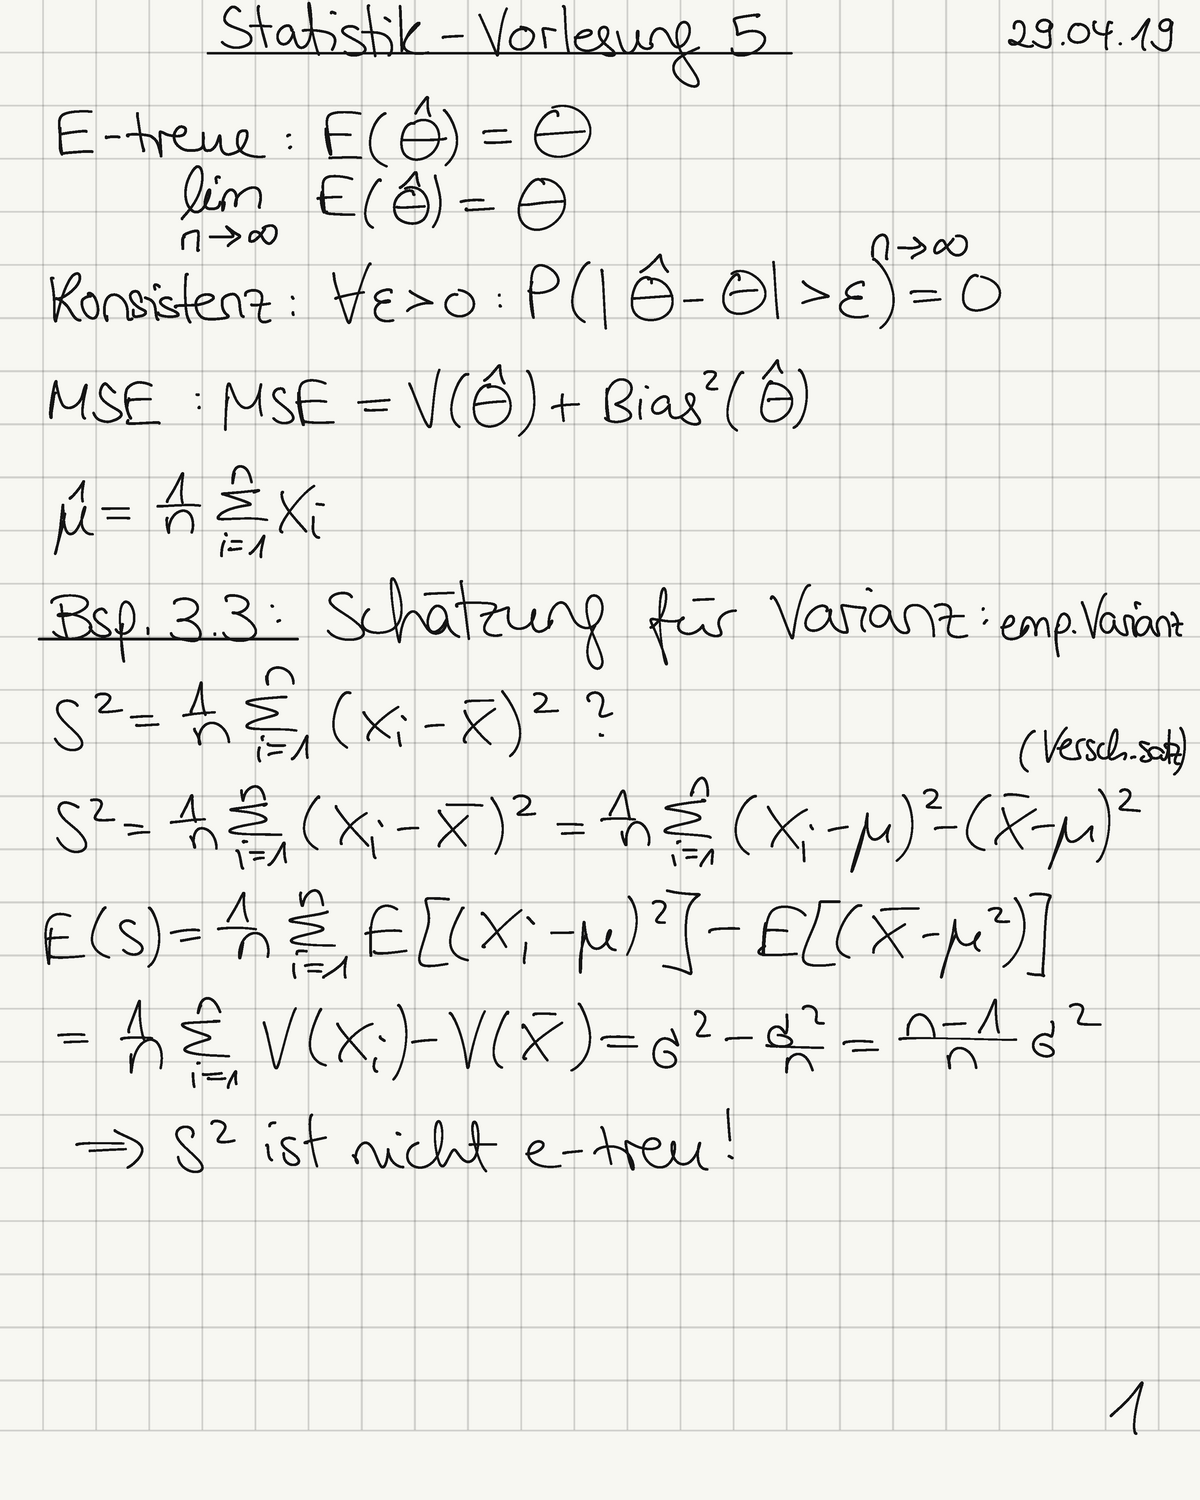 Statistik - Vorlesung 5 29.04.19
E-treue : E(θ̂) = θ
lim E(θ̂) = θ
n→∞
n→∞
Konsistenz : ∀ε>0 : P(|θ̂ - θ| > ε) = 0
MSE : MSE = V(θ̂) + Bias²(θ̂)
μ̂ = 1/n ∑_{i=1}^{n} Xi
Bsp. 3.3 : Schätzung für Varianz : emp. Varianz
S² = 1/n ∑_{i=1}^{n} (xi - x̄)² ?
(Versch.satz)
S² = 1/n ∑_{i=1}^{n} (Xi - X̄)² = 1/n ∑_{i=1}^{n} (Xi - μ)² - (X̄ - μ)²
E(S) = 1/n ∑_{i=1}^{n} E[(Xi - μ)²] - E[(X̄ - μ²)]
= 1/n ∑_{i=1}^{n} V(Xi) - V(X̄) = σ² - σ²/n = n-1/n σ²
⇒ S² ist nicht e-treu!
1